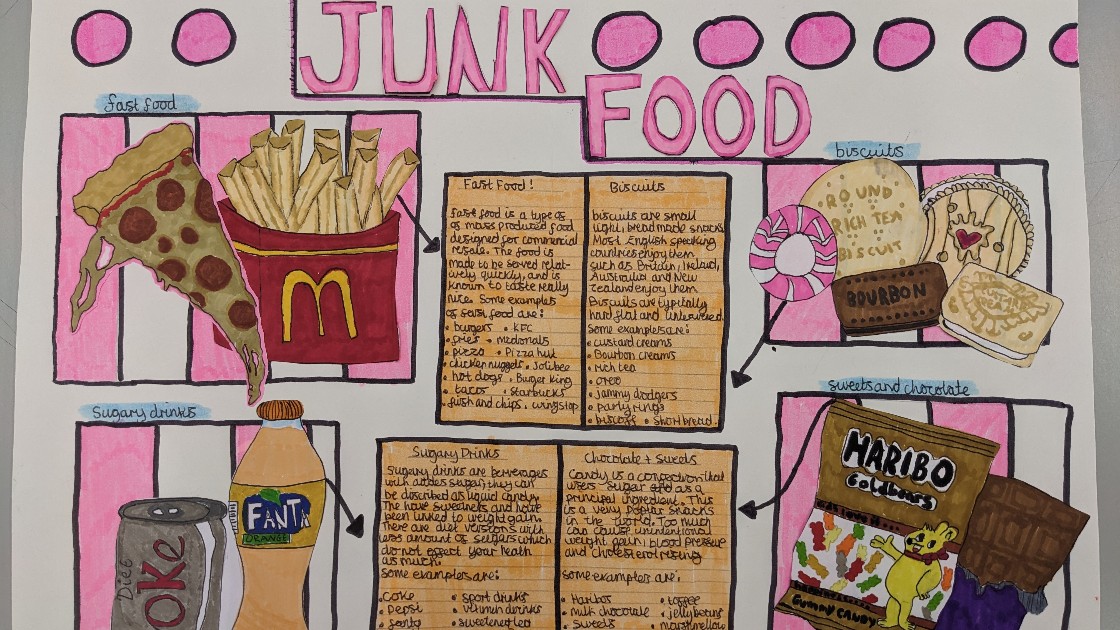 JUNK
FOOD
fast food
biscuits
Fast Food!
fast food is a type of
of mass produced food
designed for commercial
resale. The food is
made to be served relat-
ively quickly, and is
known to taste really
nice. Some examples
of fast food are:
• burgers • KFC
• fries • mcdonals
• pizza • Pizza hut
• chicken nuggets • Jolibee
• hot dogs • Burger king
• tacos • Starbucks
• fish and chips • wingstop
Biscuits
biscuits are small
light, bread made snacks
Most English speaking
countries enjoy them
such as Britain, Ireland,
Australia and New
Zealand enjoy them
Biscuits are typically
hard flat and
some examples are:
• custard creams
• Bourbon creams
• rich tea
• oreo
• jammy dodgers
• party rings
• biscoff • short bread
ROUND
RICH TEA
BISCUIT
BOURBON
Sugary drinks
sweets and chocolate
Sugary Drinks
Sugary drinks are beverages
with added sugar, they can
be discribed as liquid candy.
The have sweeness and have
been linked to weight gain.
There are diet versions with
less amount of sugars which
do not effect your heath
as much.
some examples are:
• Coke • sport drinks
• Pepsi • vitimin drinks
• fanta • sweetened tea
Chocolate + Sweets
Candy is a confection that
uses sugar as a
principal ingredient. This
is a very popular snacks
in the world. Too much
can cause unintentional
weight gain, blood pressure
and cholesterol rising
some examples are:
• Haribos • toffee
• milk chocolate • jellybeans
• sweets • marshmellow
Diet
oke
FANTA
ORANGE
HARIBO
Goldbears
GUMMY CANDY